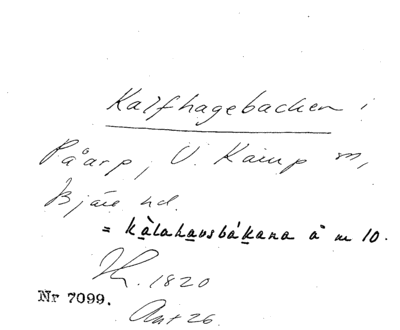 Kalfhagebacken i
Påarp, V. Karup sn,
Bjäre hd.
= kàlahausbákana å m 10.
1820
Nr 7099.
Ant 26.